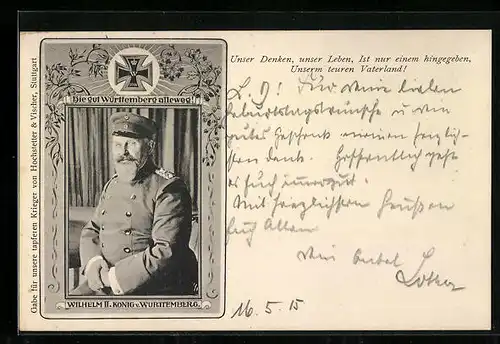 Gabe für unsere tapferen Krieger von Hochstetter & Vischer, Stuttgart
Die gut Württemberg alleweg!
WILHELM II. KÖNIG v. WÜRTTEMBERG.
Unser Denken, unser Leben, Ist nur einem hingegeben,
Unserm teuren Vaterland!
L. O! Für Deine lieben
Geburtstagswünsche u. Dein
gutes Geschenk meinen herzlich-
sten Dank. Hoffentlich geht
es Euch immer gut.
Mit herzlichsten Grüßen
Euch Allen
Dein
Lothar
16.5.15